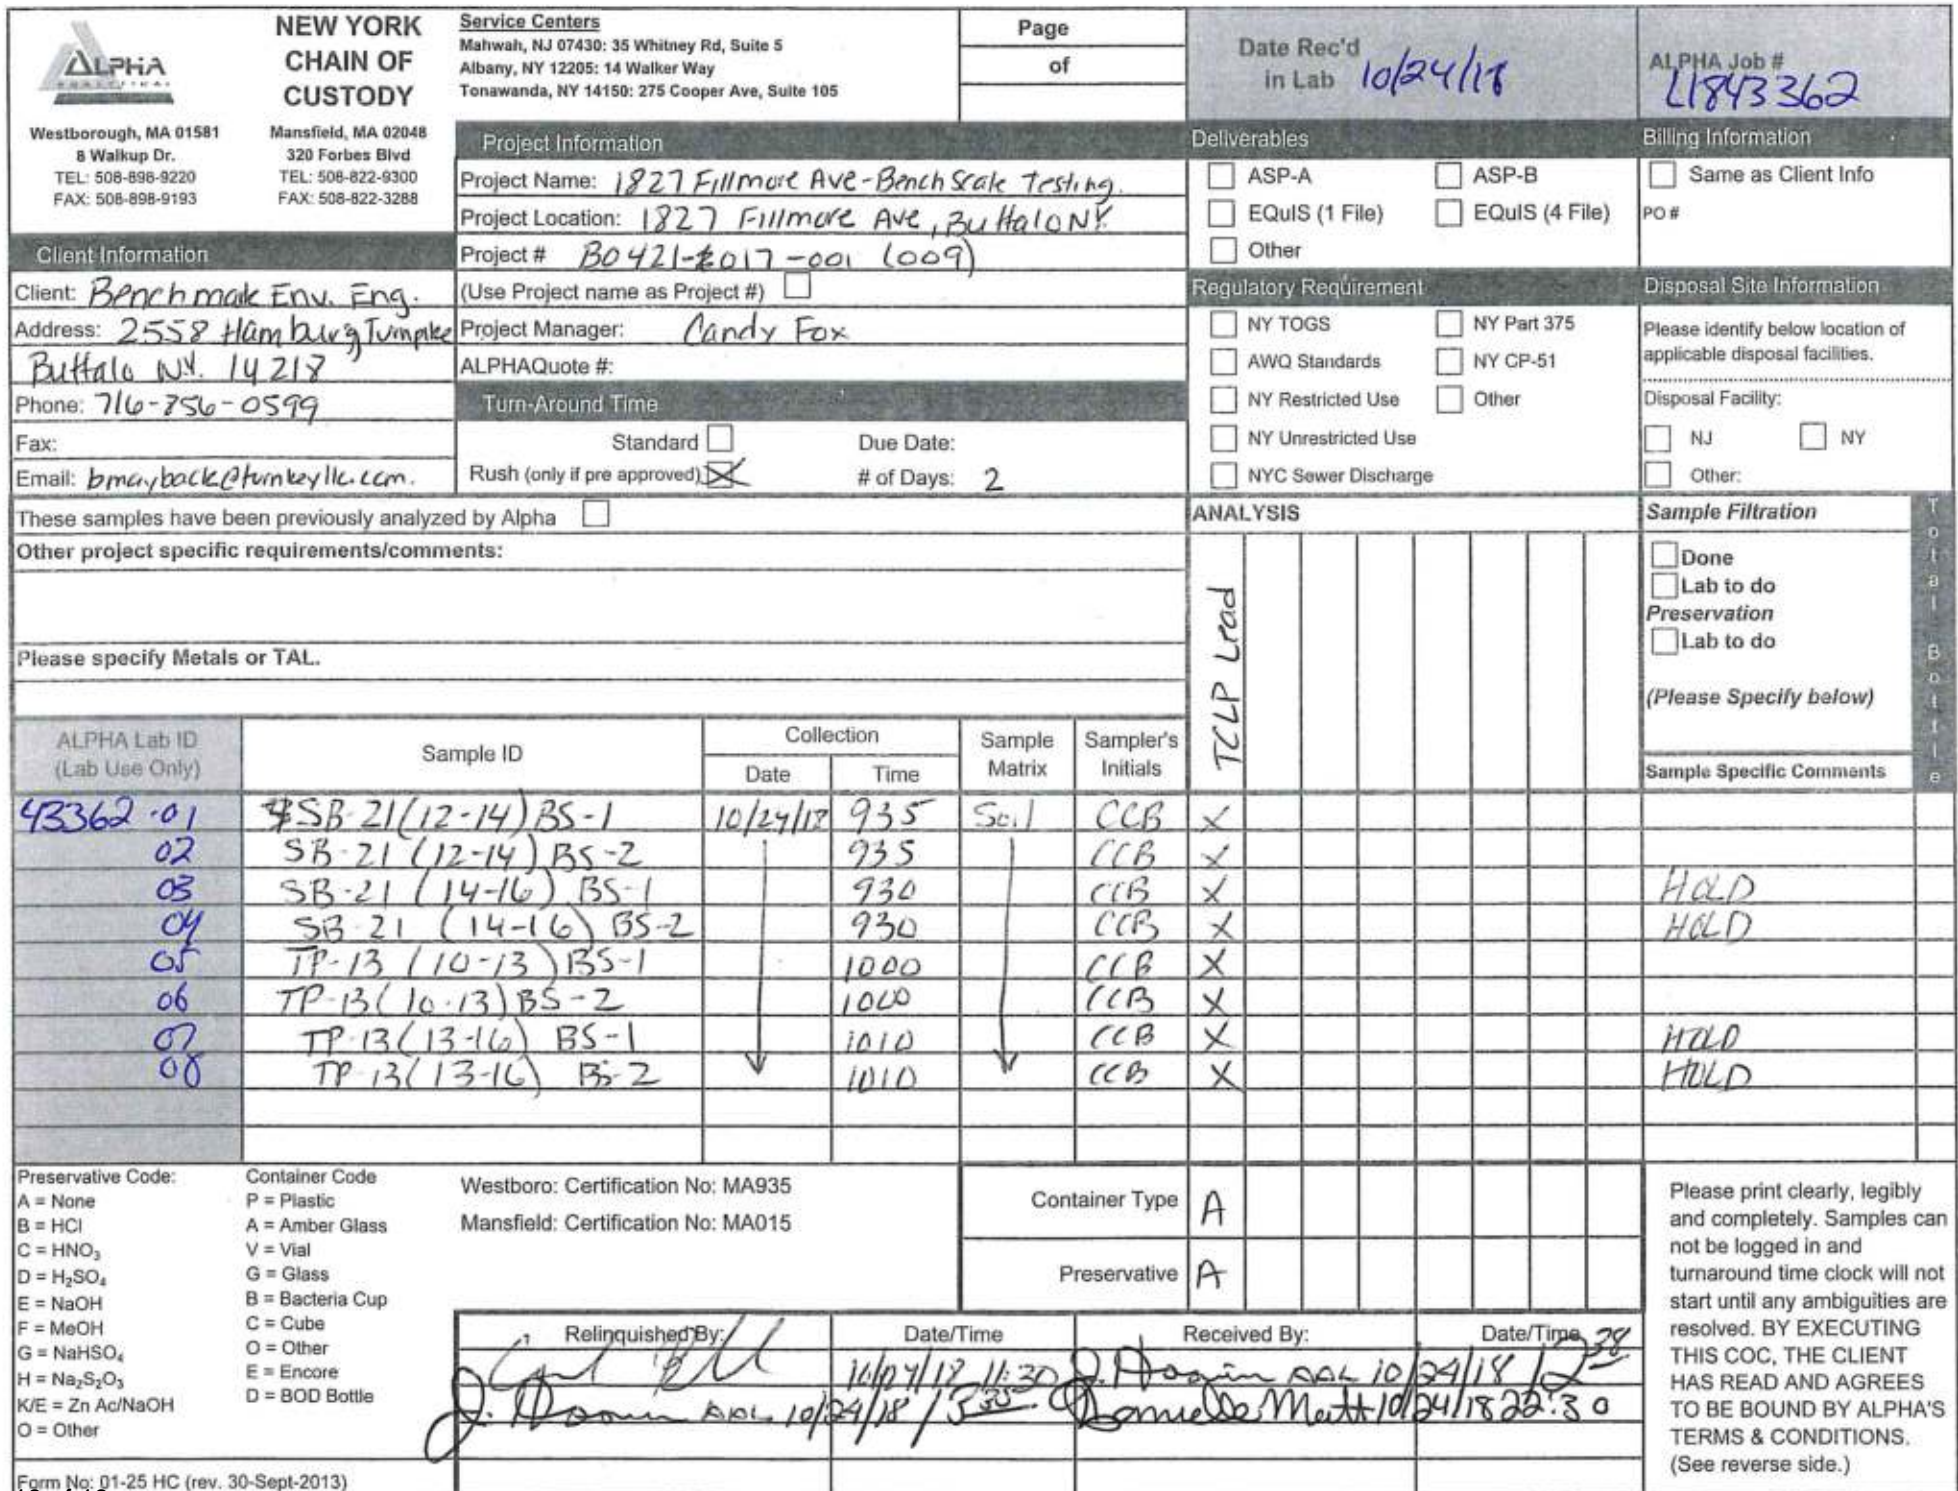 ALPHA
ANALYTICAL
NEW YORK
CHAIN OF
CUSTODY
Westborough, MA 01581
8 Walkup Dr.
TEL: 508-898-9220
FAX: 508-898-9193
Mansfield, MA 02048
320 Forbes Blvd
TEL: 508-822-9300
FAX: 508-822-3288
Service Centers
Mahwah, NJ 07430: 35 Whitney Rd, Suite 5
Albany, NY 12205: 14 Walker Way
Tonawanda, NY 14150: 275 Cooper Ave, Suite 105
Page
of
Date Rec'd
in Lab 10/24/18
ALPHA Job #
L1843362
Client Information
Client: Benchmark Env. Eng.
Address: 2558 Hamburg Turnpike
Buffalo N.Y. 14218
Phone: 716-856-0599
Fax:
Email: bmayback@turnkeyllc.com.
Project Information
Project Name: 1827 Fillmore Ave-Bench Scale Testing.
Project Location: 1827 Fillmore Ave, Buffalo NY.
Project # B0421-2017-001 (009)
(Use Project name as Project #)
Project Manager: Candy Fox
ALPHAQuote #:
Turn-Around Time
Standard Due Date:
Rush (only if pre approved) X # of Days: 2
Deliverables
ASP-A ASP-B
EQuIS (1 File) EQuIS (4 File)
Other
Regulatory Requirement
NY TOGS NY Part 375
AWQ Standards NY CP-51
NY Restricted Use Other
NY Unrestricted Use
NYC Sewer Discharge
Billing Information
Same as Client Info
PO #
Disposal Site Information
Please identify below location of
applicable disposal facilities.
Disposal Facility:
NJ NY
Other:
These samples have been previously analyzed by Alpha
Other project specific requirements/comments:
Please specify Metals or TAL.
ANALYSIS
TCLP Lead
Sample Filtration
Done
Lab to do
Preservation
Lab to do
(Please Specify below)
Sample Specific Comments
Total Bottle
ALPHA Lab ID
(Lab Use Only)
Sample ID
Collection
Date Time
Sample
Matrix
Sampler's
Initials
43362-01 SB-21(12-14) BS-1 10/24/18 935 Soil CCB X
02 SB-21 (12-14) BS-2 935 CCB X
03 SB-21 (14-16) BS-1 930 CCB X HOLD
04 SB-21 (14-16) BS-2 930 CCB X HOLD
05 TP-13 (10-13) BS-1 1000 CCB X
06 TP-13(10-13) BS-2 1000 CCB X
07 TP-13(13-16) BS-1 1010 CCB X HOLD
08 TP-13(13-16) BS-2 1010 CCB X HOLD
Preservative Code:
A = None
B = HCl
C = HNO₃
D = H₂SO₄
E = NaOH
F = MeOH
G = NaHSO₄
H = Na₂S₂O₃
K/E = Zn Ac/NaOH
O = Other
Container Code
P = Plastic
A = Amber Glass
V = Vial
G = Glass
B = Bacteria Cup
C = Cube
O = Other
E = Encore
D = BOD Bottle
Westboro: Certification No: MA935
Mansfield: Certification No: MA015
Container Type A
Preservative A
Relinquished By: Date/Time Received By: Date/Time
10/24/18 11:30 AAL 10/24/18
AAL 10/24/18 Danielle 10/24/18 22:30
Please print clearly, legibly
and completely. Samples can
not be logged in and
turnaround time clock will not
start until any ambiguities are
resolved. BY EXECUTING
THIS COC, THE CLIENT
HAS READ AND AGREES
TO BE BOUND BY ALPHA'S
TERMS & CONDITIONS.
(See reverse side.)
Form No: 01-25 HC (rev. 30-Sept-2013)